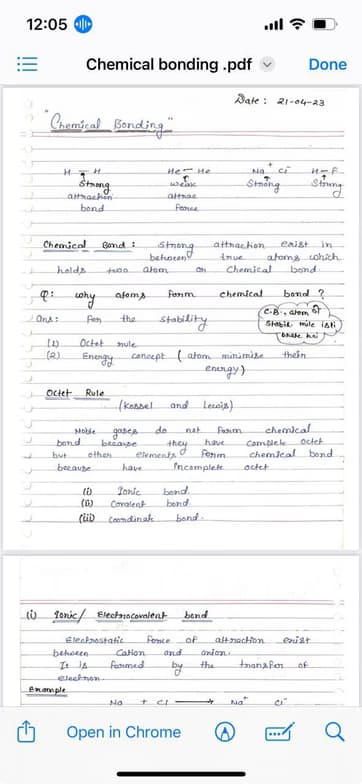 12:05
Chemical bonding .pdf
Done
Date : 21-04-23
"Chemical Bonding"
H - H He - He Na+ Cl- H-F
Strong weak Strong Strong
attraction attrac
bond force
Chemical Bond : Strong attraction exist in
between true atoms which
holds two atom or Chemical bond.
Q: why atoms form chemical bond ?
Ans: For the stability
C.B., atom
Stabili mile isti
(1) Octet rule
(2) Energy concept ( atom minimise their
energy)
Octet Rule
(Kossel and Lewis)
Noble gases do not form chemical
bond because they have complete octet
but other elements form chemical bond
because have incomplete octet
(i) Ionic bond.
(ii) Covalent bond
(iii) Coordinate bond.
(i) Ionic/ Electrocovalent bond
Electrostatic force of attraction exist
between Cation and anion.
It is formed by the transfer of
electron.
Example
Na + Cl → Na+ Cl-
Open in Chrome